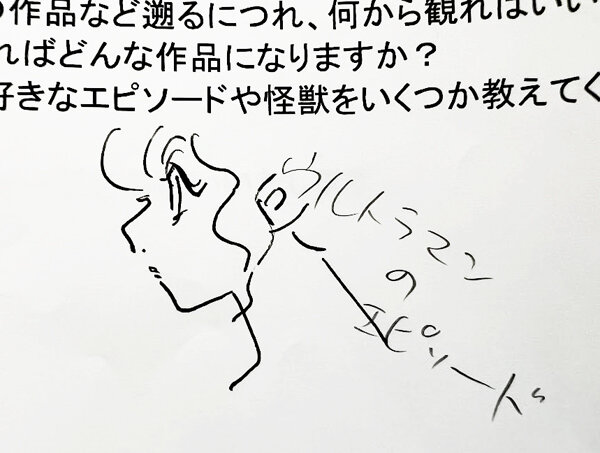 作品など遡るにつれ、何から観ればいい
ればどんな作品になりますか？
好きなエピソードや怪獣をいくつか教えてく
ウルトラマン
の
エピソード